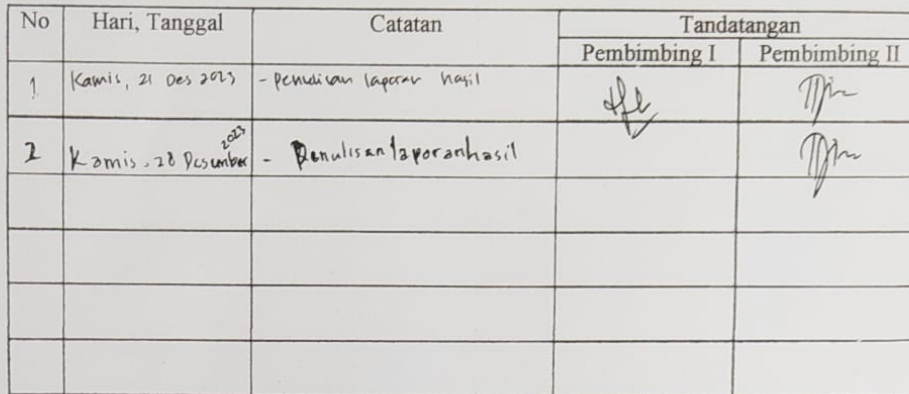 No Hari, Tanggal Catatan Tandatangan
Pembimbing I Pembimbing II
1 Kamis, 21 Des 2023 - Penulisan laporan hasil
2 Kamis, 28 Desember 2023 - Penulisan laporan hasil